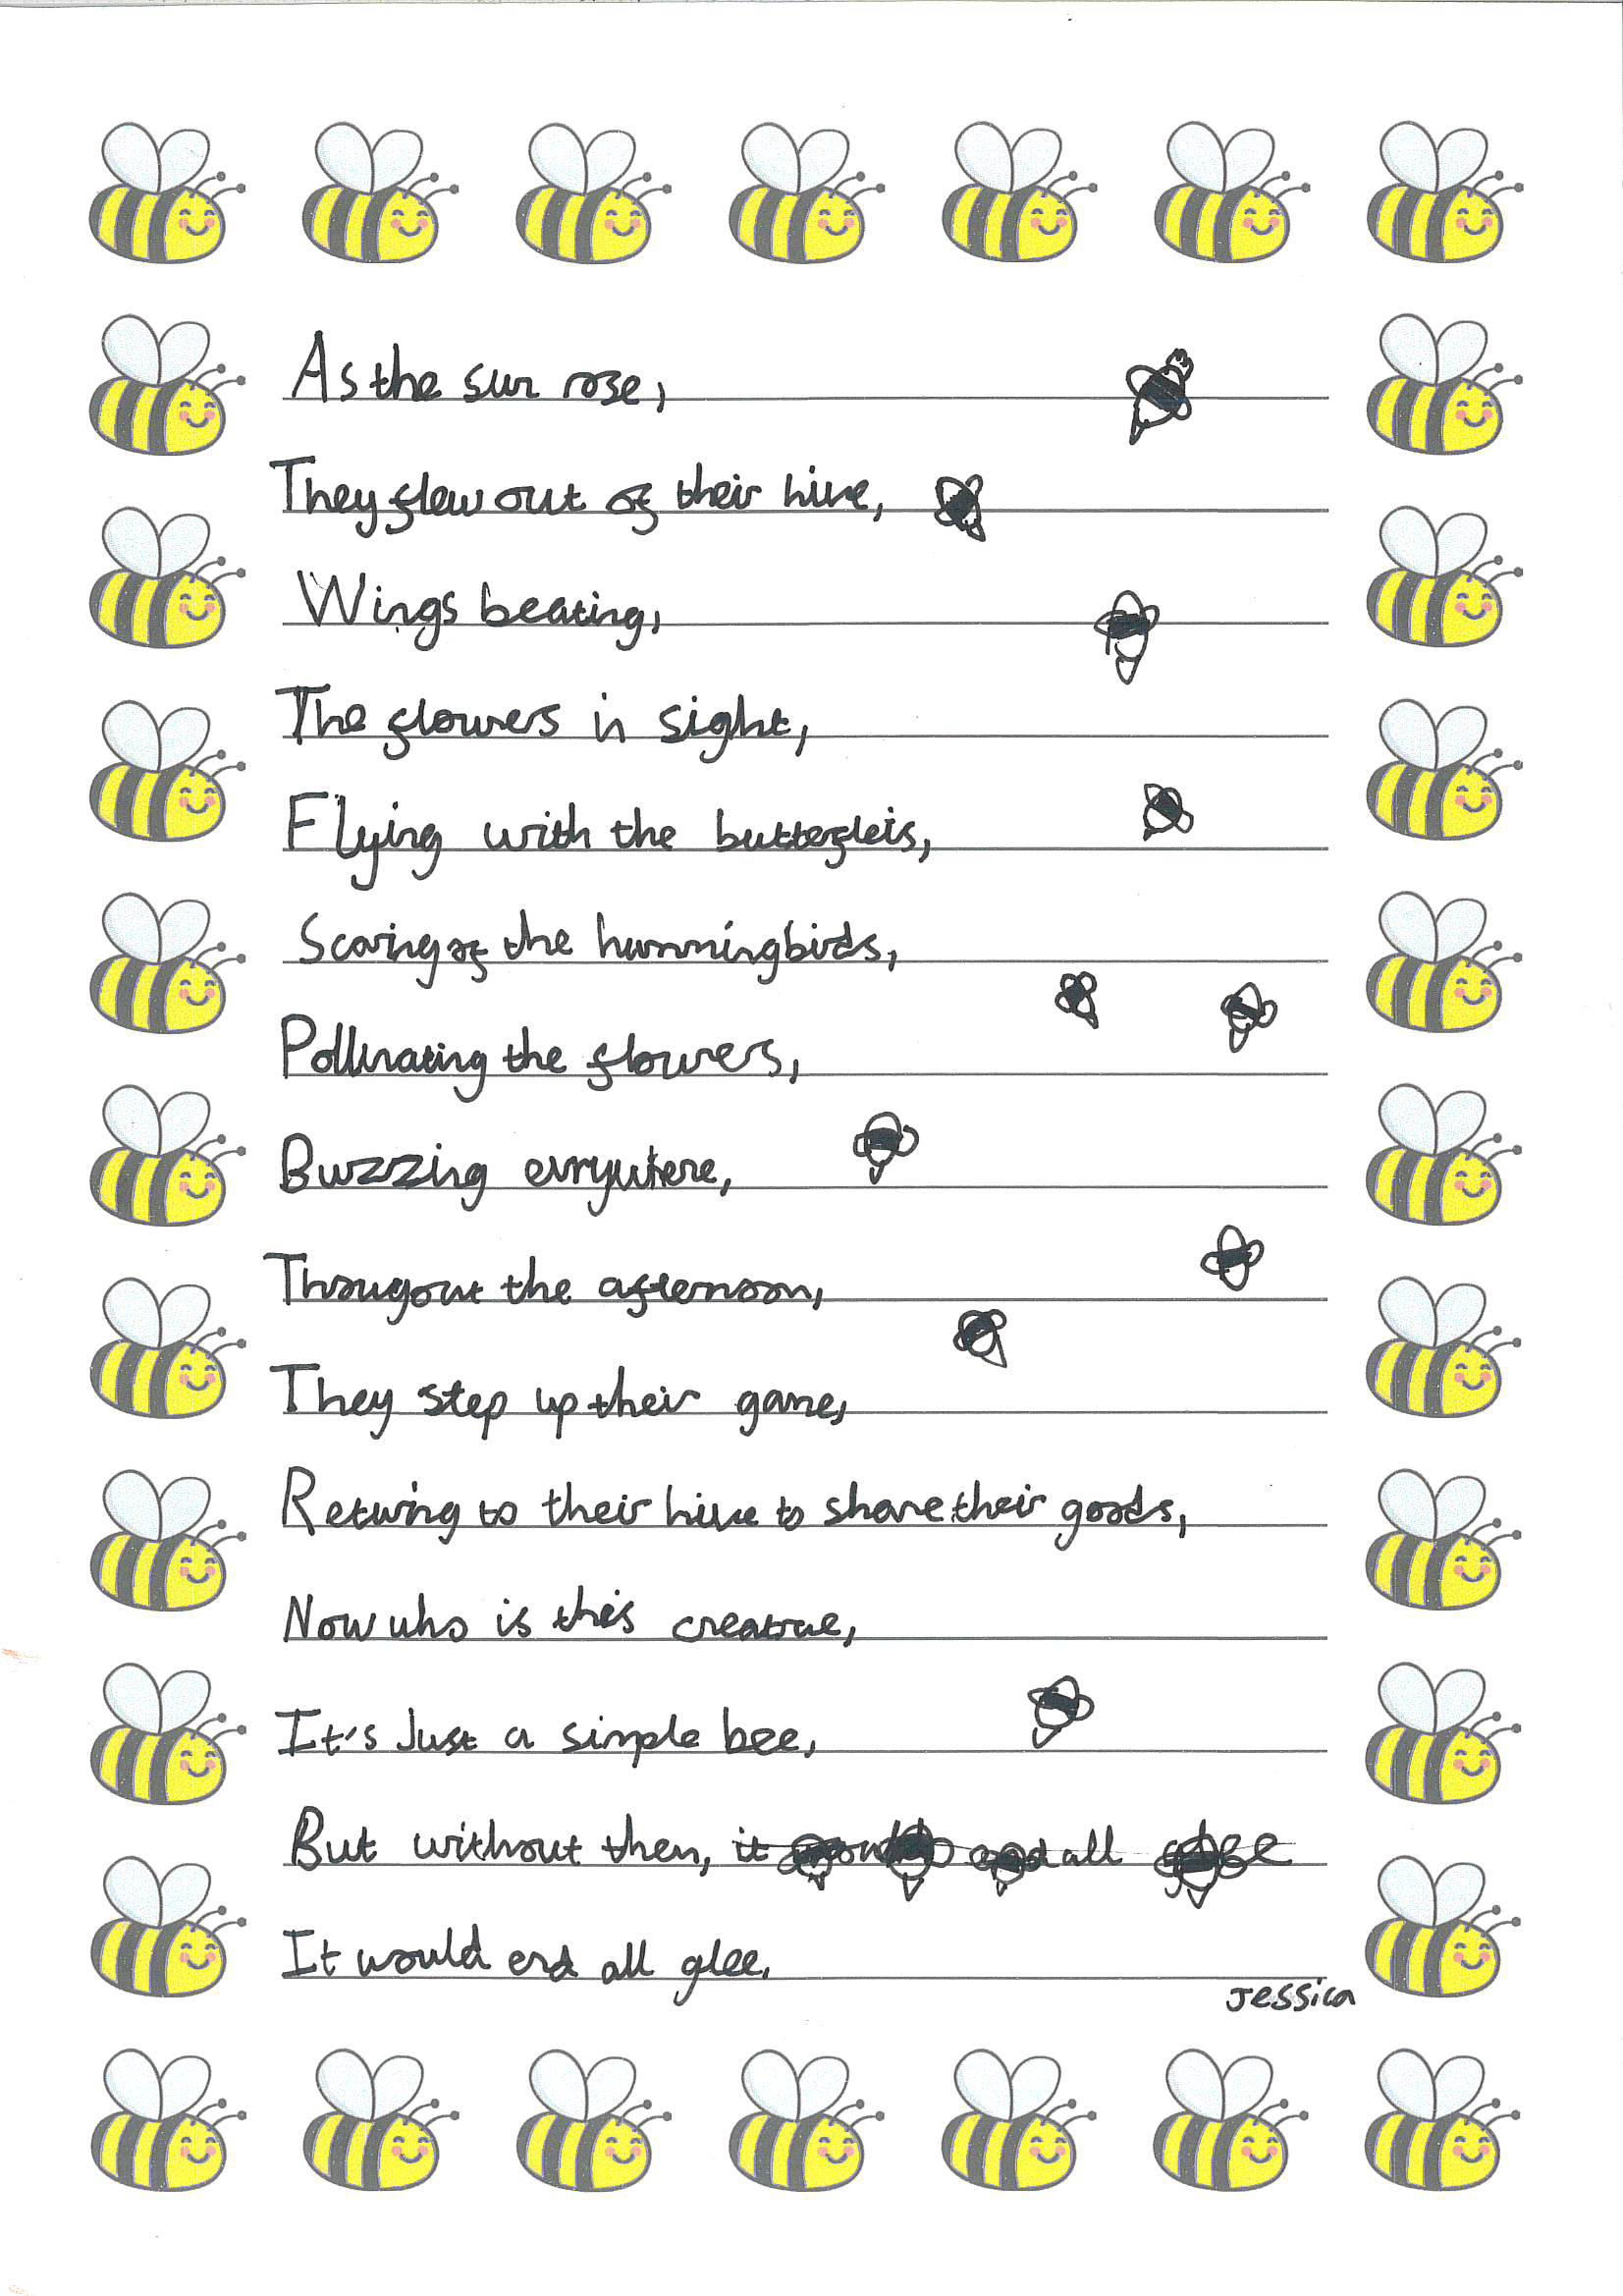 As the sun rose,
They flew out of their hive,
Wings beating,
The flowers in sight,
Flying with the butterfleis,
Scaring of the hummingbirds,
Pollinating the flowers,
Buzzing evrywhere,
Througout the afternoon,
They step up their game,
Returing to their hive to share their goods,
Now who is this creature,
It's Just a simple bee,
But without them, it would end all glee
It would end all glee.
Jessica